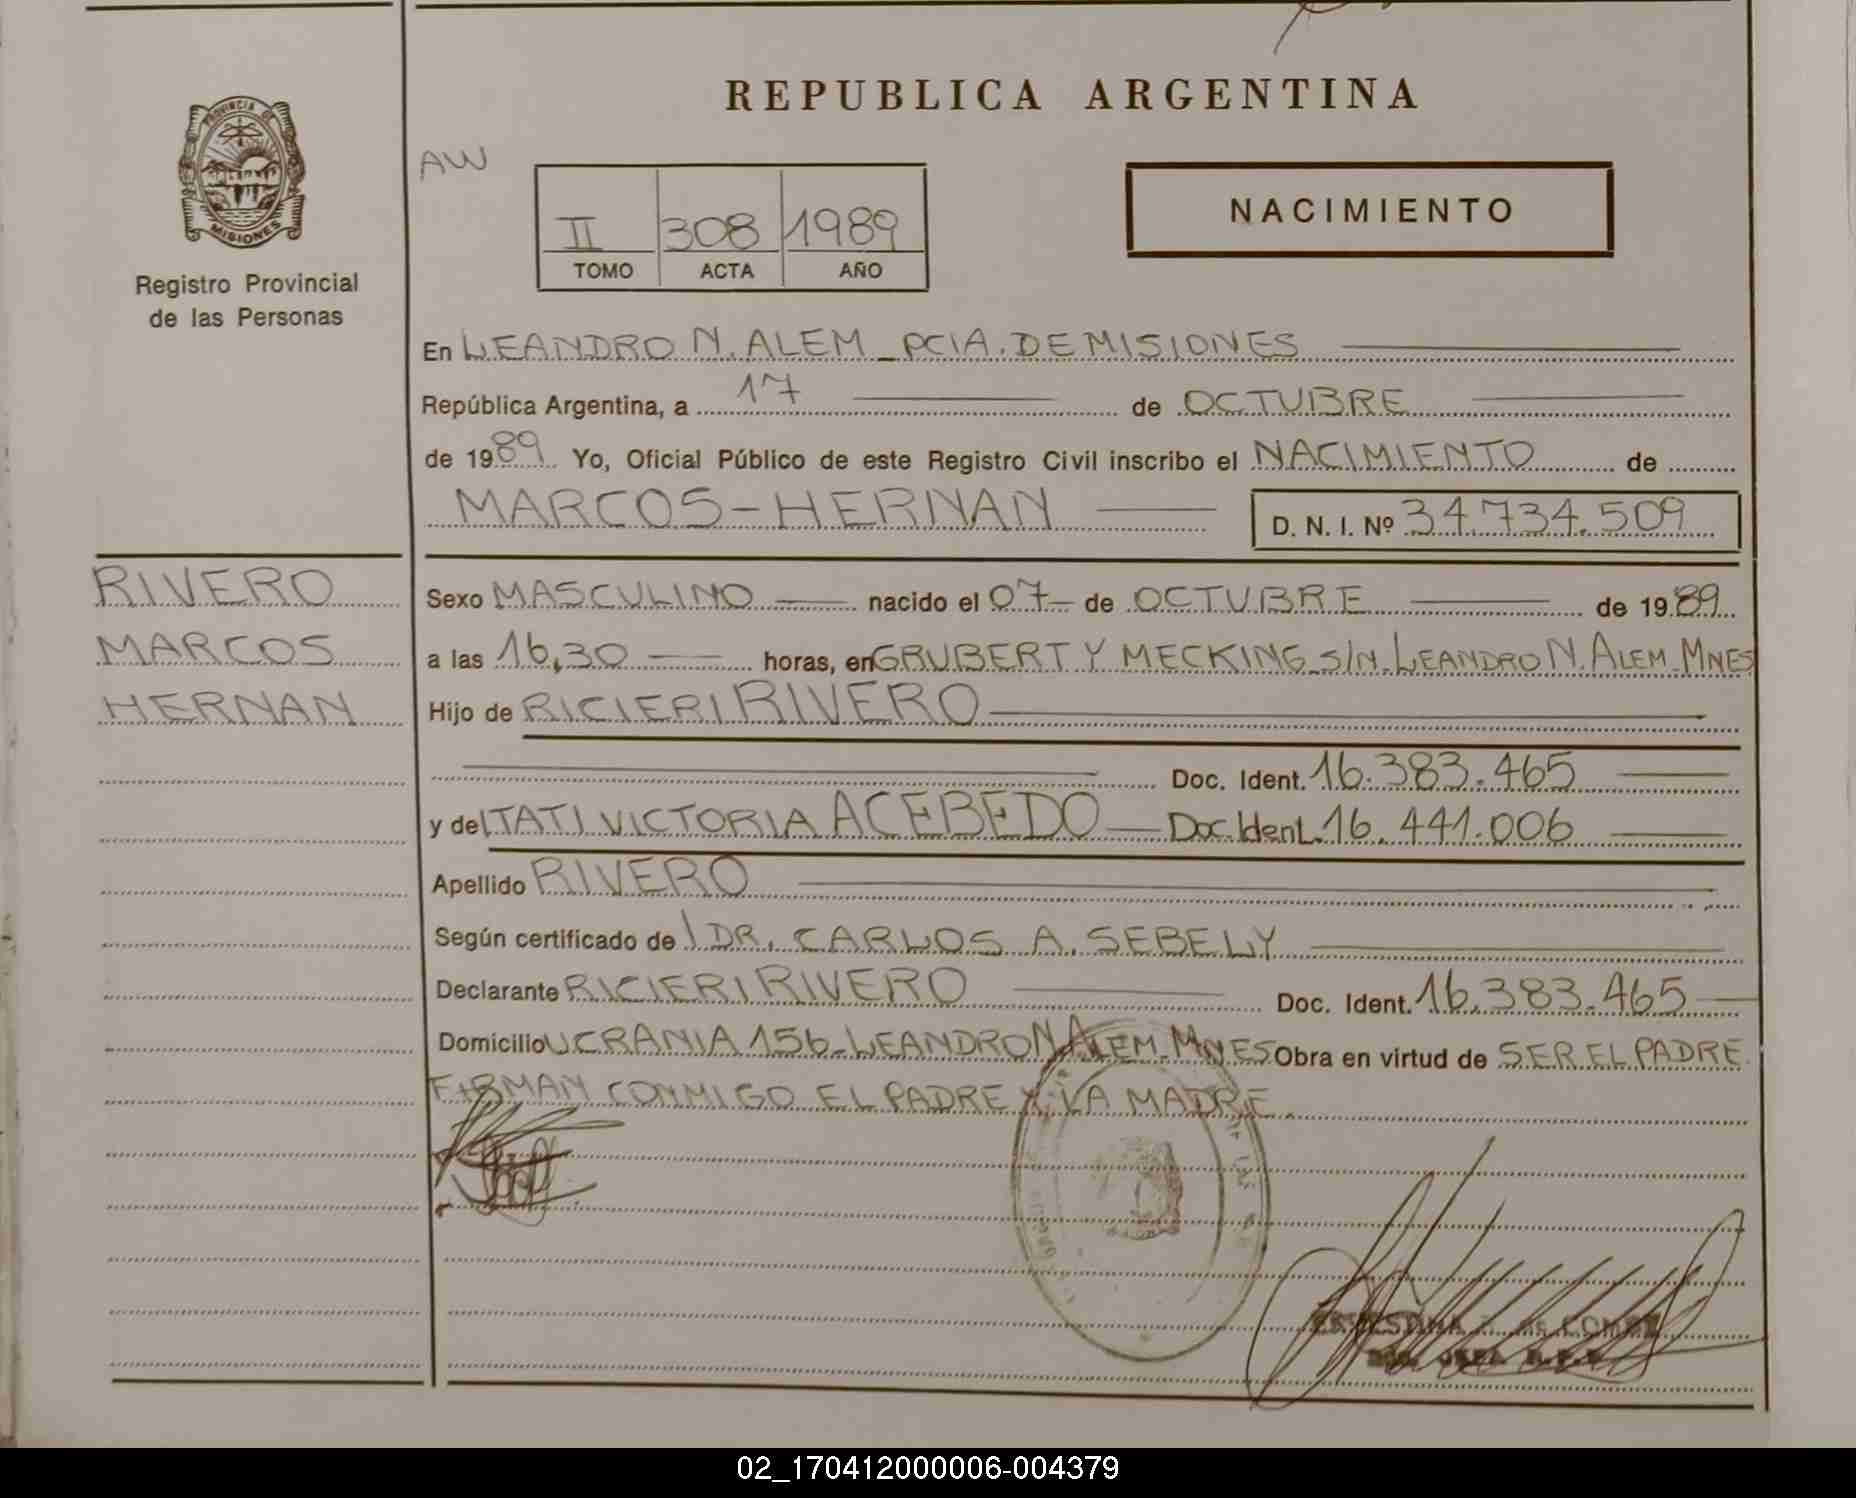 REPUBLICA ARGENTINA
PROVINCIA DE
MISIONES
Registro Provincial
de las Personas
AW
II 308 1989
TOMO ACTA AÑO
NACIMIENTO
En LEANDRO N. ALEM _ PCIA. DE MISIONES
República Argentina, a 17 de OCTUBRE
de 1989 Yo, Oficial Público de este Registro Civil inscribo el NACIMIENTO de
MARCOS-HERNAN D. N. I. Nº 34.734.509
RIVERO
MARCOS
HERNAN
Sexo MASCULINO nacido el 07 de OCTUBRE de 1989
a las 16,30 horas, en GRUBERT Y MECKING S/N. LEANDRO N. ALEM. MNES
Hijo de RICIERI RIVERO
Doc. Ident. 16.383.465
y de ITATI VICTORIA ACEBEDO Doc. Ident. 16.441.006
Apellido RIVERO
Según certificado de DR. CARLOS A. SEBELY
Declarante RICIERI RIVERO Doc. Ident. 16.383.465
Domicilio UCRANIA 156_LEANDRO N. ALEM. MNES Obra en virtud de SER EL PADRE.
FIRMAN CONMIGO EL PADRE Y LA MADRE.
02_170412000006-004379